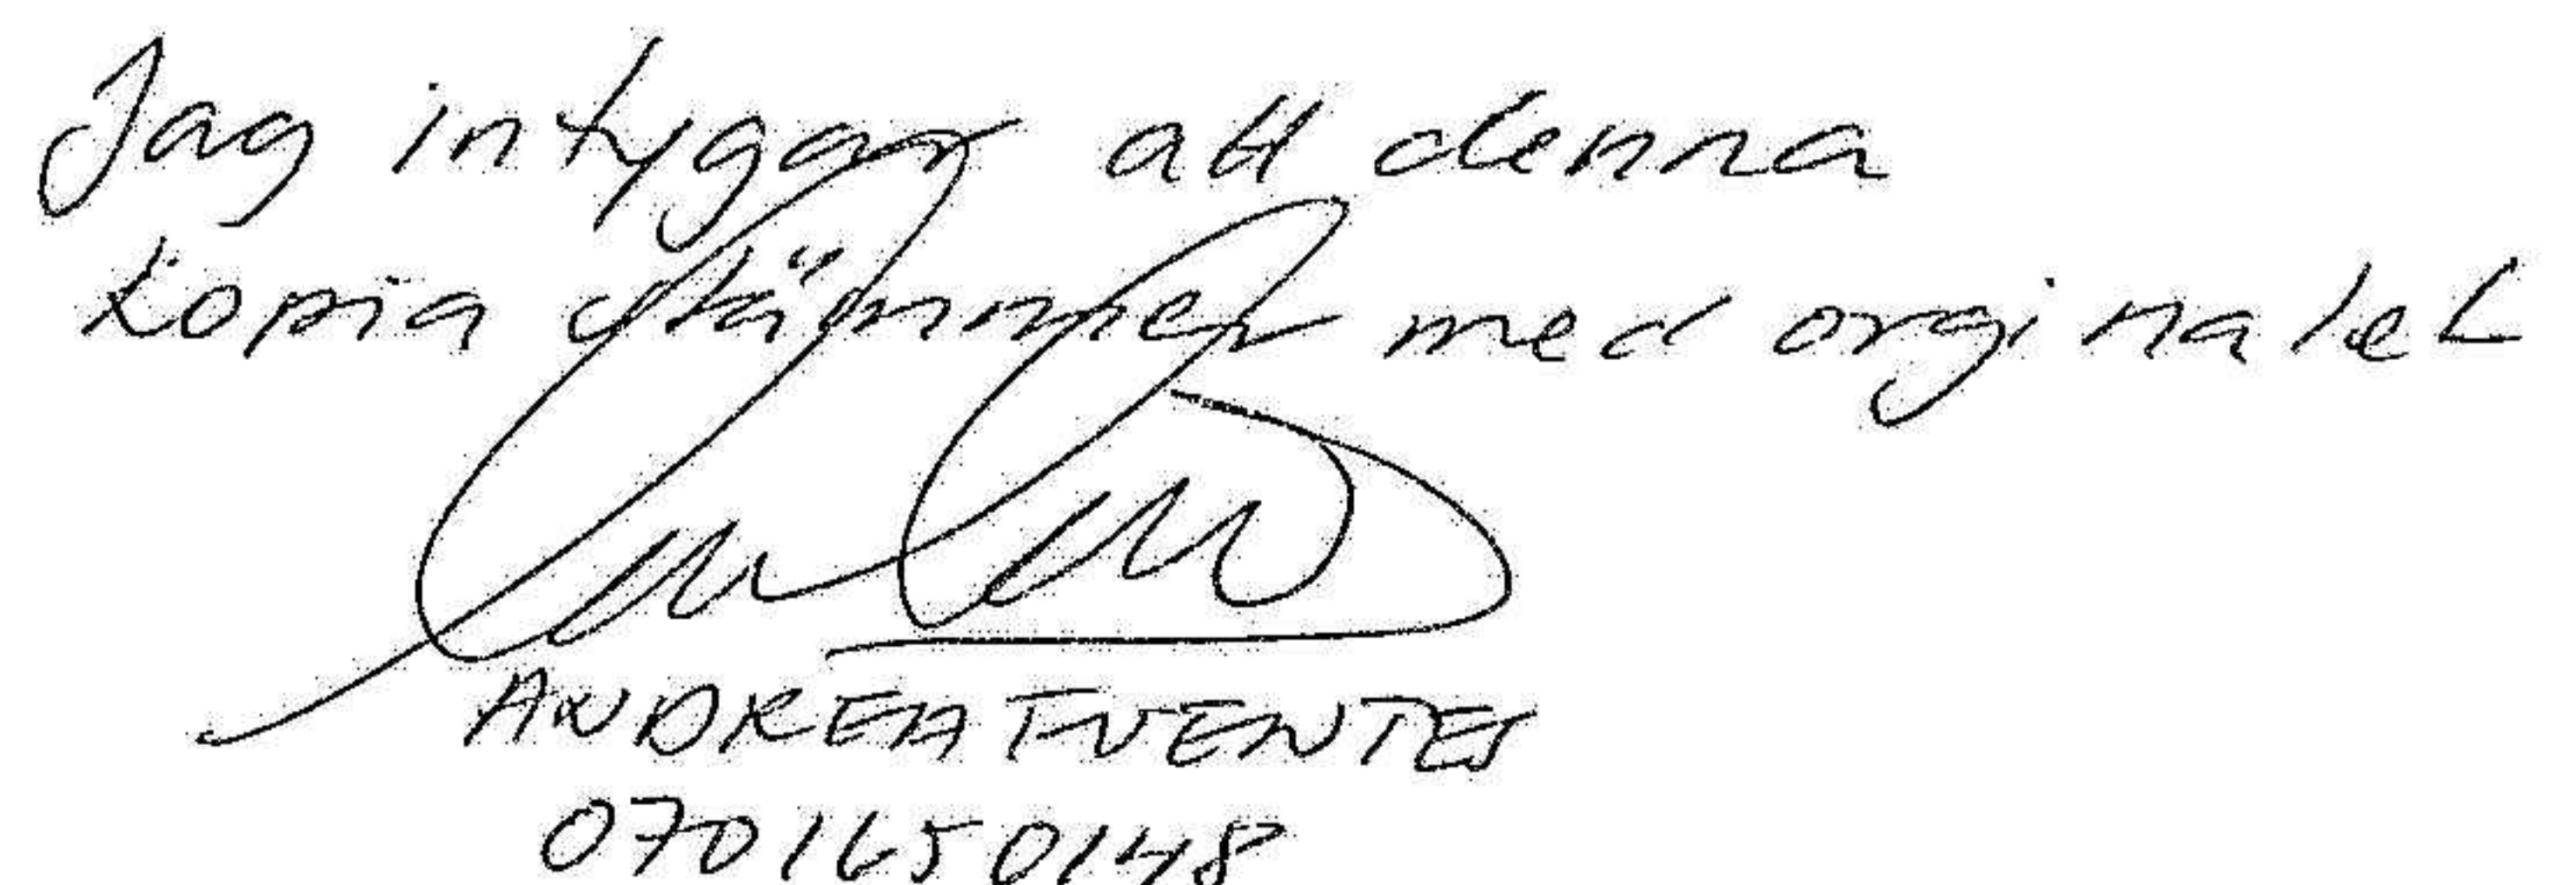 Jag intygar att denna
kopia stämmer med orginalet
ANDREA FUENTES
0701650148